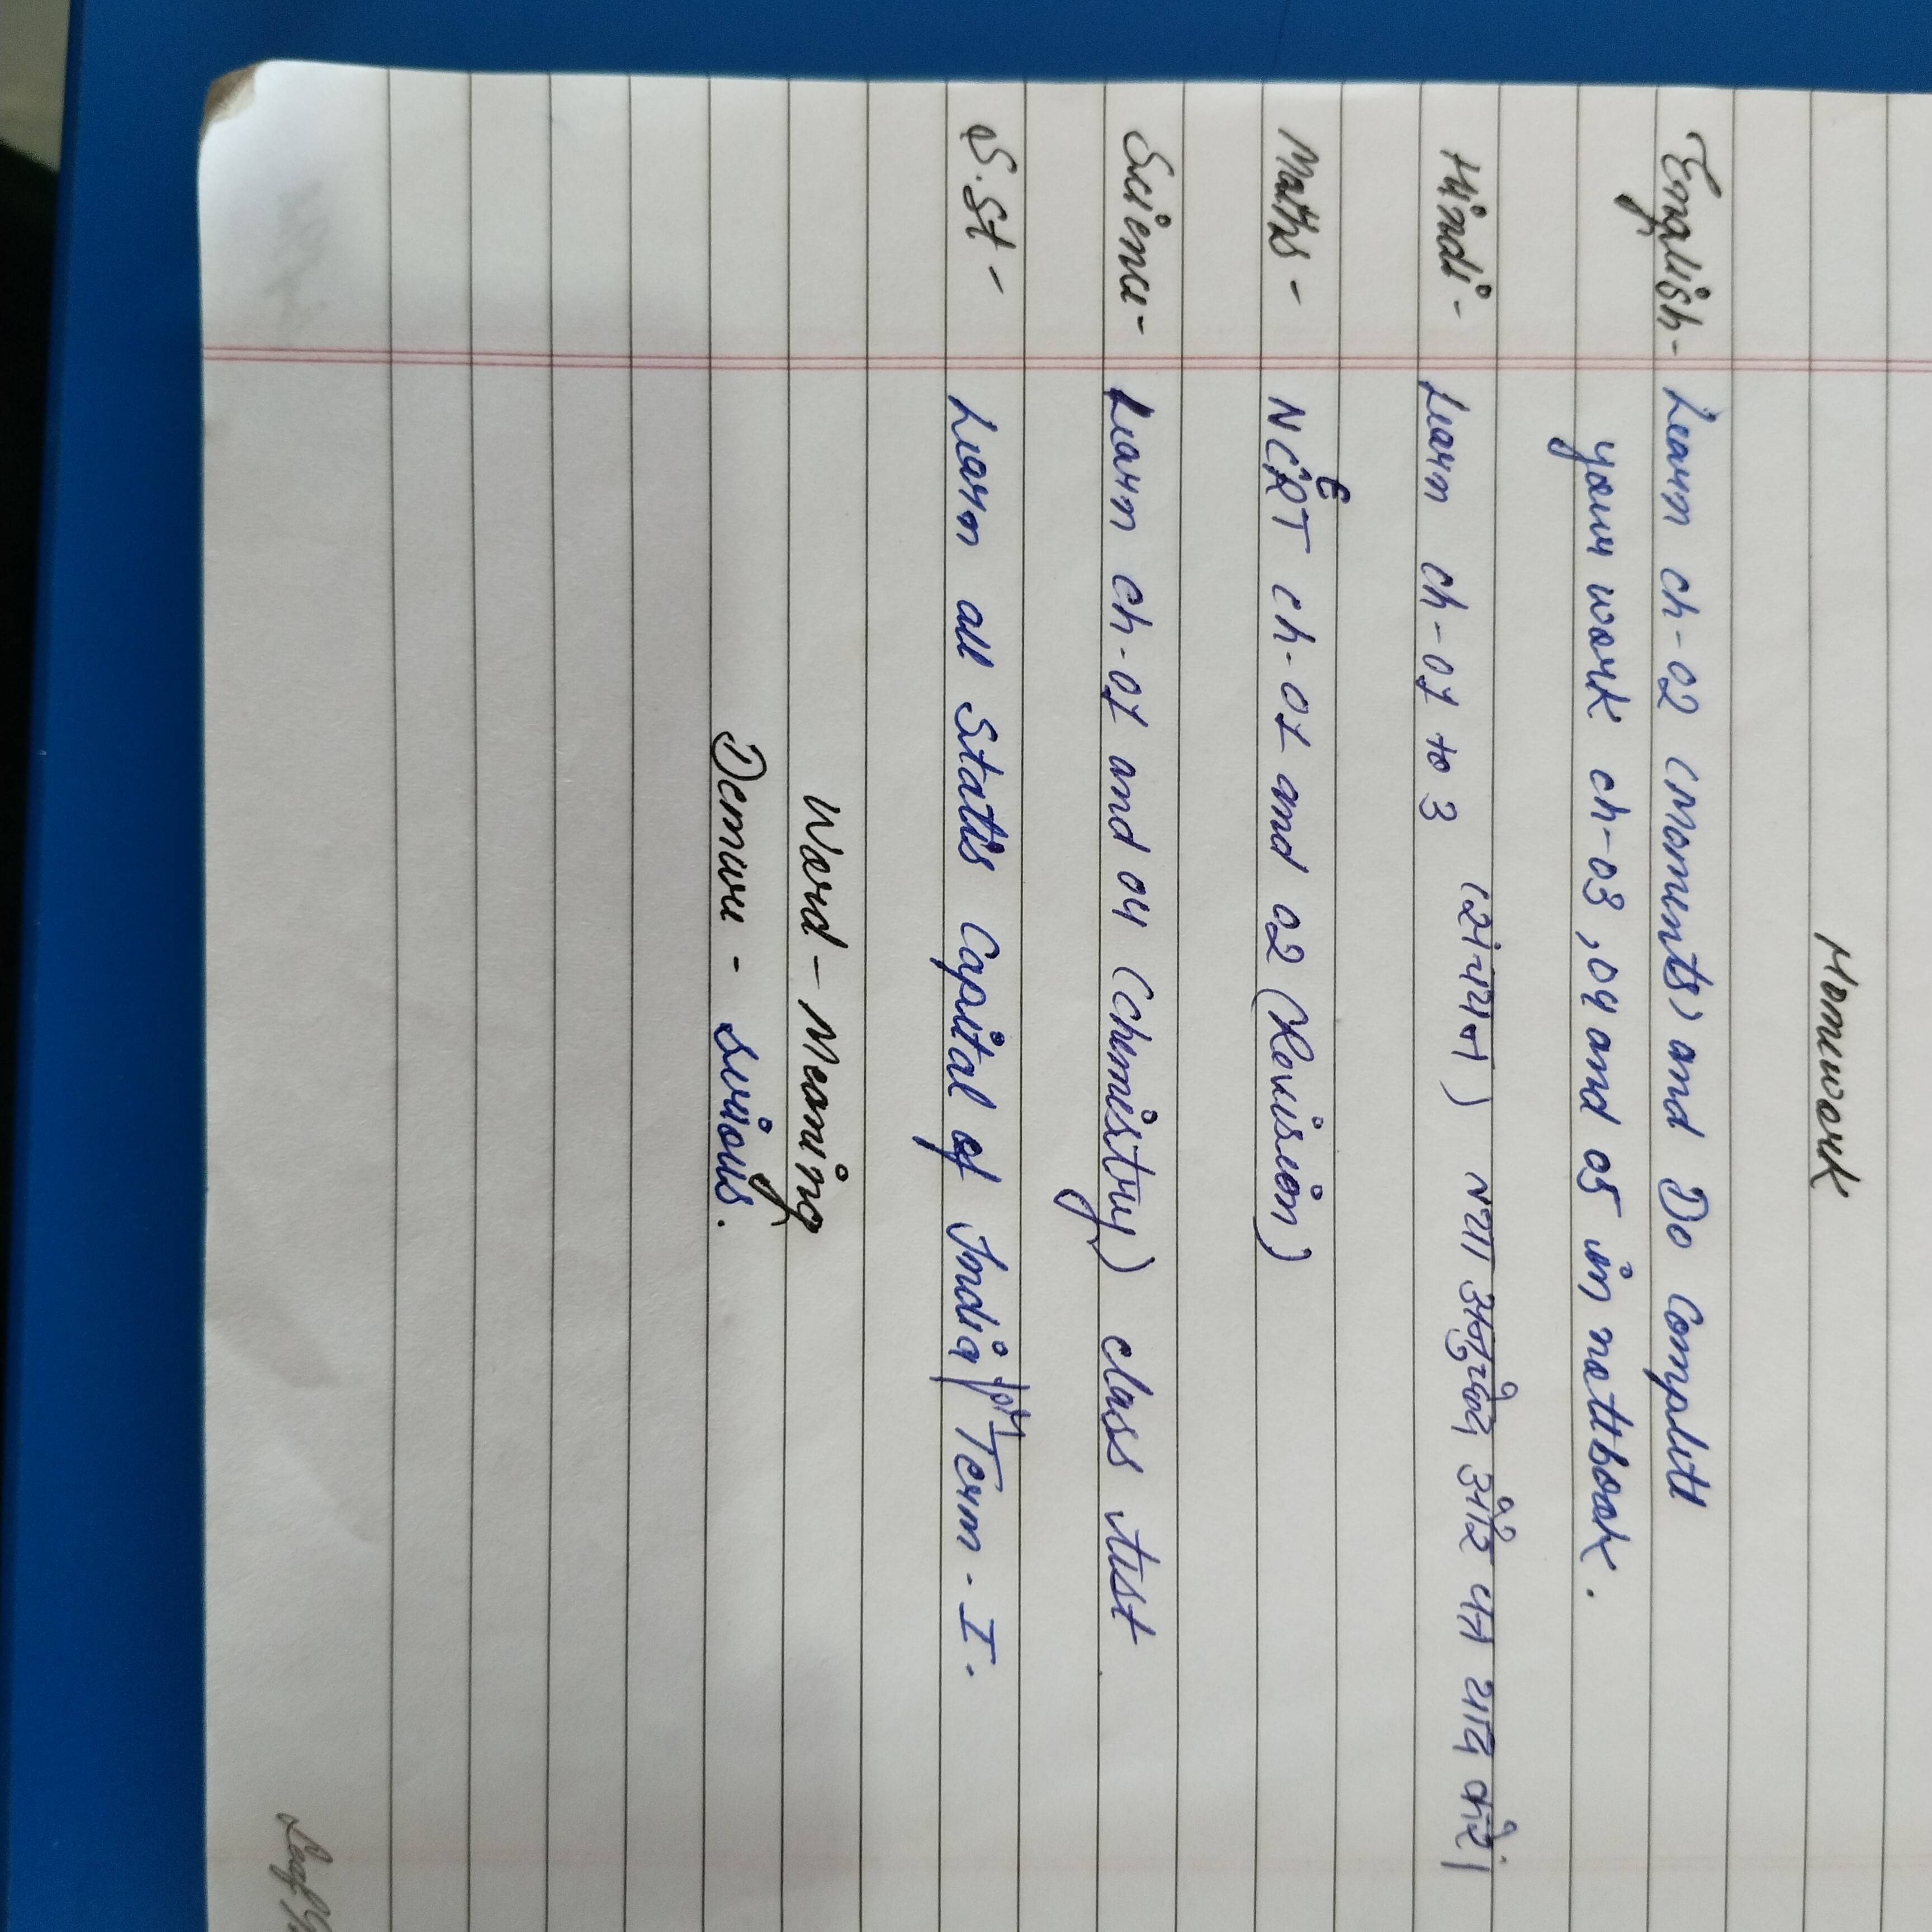 Homework
English- Learn ch-02 (Moments) and Do Complete
your work ch-03, 04 and 05 in notebook.
Hindi- Learn ch-01 to 3 (संचयन) नया अनुच्छेद और पत्र याद करें।
Maths- NCERT ch-01 and 02 (Revision)
Science- Learn ch-01 and 04 (Chemistry) class test
S.St- Learn all States Capital of India Term-I.
Word-Meaning
Demure - serious.